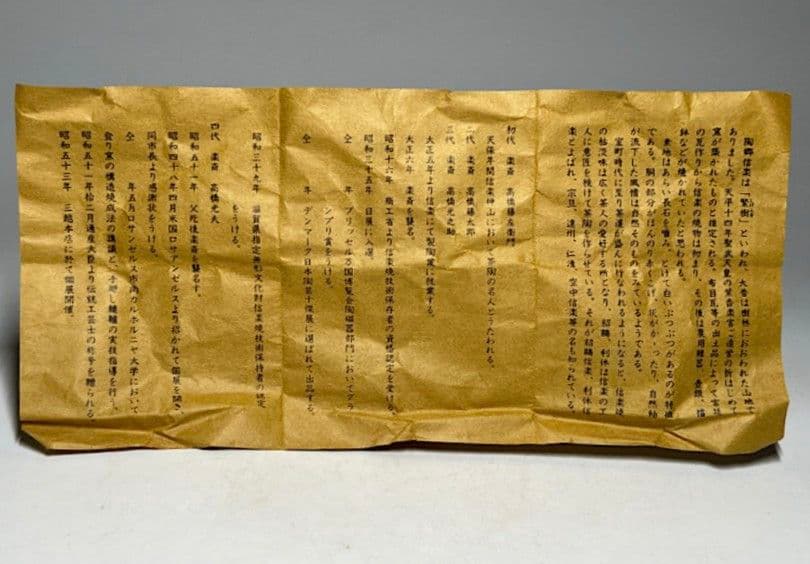 陶郷信楽は「繁樹」といわれ、大昔は樹林におおわれた山地で
ありました。天平十四年聖武天皇の紫香楽宮ご造営の折はじめて
窯が築かれたものと推定される。布目瓦等の出土品によって宮
の瓦作りから信楽の焼物は初まり、その後は農用雑器
鉢などが焼かれていたと思われる。
素地はあらい長石を噛み、とけて白いぶつぶつがあるのが特
である。胴の部分がほんのりあかくこげ、灰がかゝったり、自然釉
が流下した風情は自然そのものをみているようである。
室町時代に至り茶道が盛んに行なわれるようになると、信楽焼
の枯淡味は広く茶人の愛好する所となり、紹鷗、利休は信楽の工
人に意匠を授けて茶陶を作らせている。それが紹鷗信楽、利休信
楽とよばれ、宗旦、遠州、仁清、空中信楽等の名も知られている。
初代 楽斎 高橋藤左衛門
天保年間信楽神山において茶陶の名人とうたわれる。
二代 楽斎 高橋藤太郎
三代 楽斎 高橋光之助
大正五年より信楽にて製陶業に従業する。
大正六年 楽斎を襲名。
昭和十六年 商工省より信楽焼技術保存者の資格認定を受ける。
昭和三十五年 日展に入選。
仝 年 ブリッセル万国博覧会陶磁器部門においてグラ
ンプリ賞をうける。
仝 年 デンマーク日本陶芸十傑展に選ばれて出品する。
昭和三十九年 滋賀県指定無形文化財信楽焼技術保持者の認定
をうける。
四代 楽斎 高橋光夫
昭和五十一年 父死後楽斎を襲名す。
昭和四十八年四月米国ロサアンゼルスより招かれて個展を開き、
同市長より感謝状をうける。
仝 年五月ロサンゼルス市南カルホルニヤ大学において
登り窯の構造焼成法の講議と、手廻し轆轤の実技指導を行う。
昭和五十一年拾二月通産大臣より伝統工芸士の称号を贈られる。
昭和五十三年 三越本店に於て個展開催。